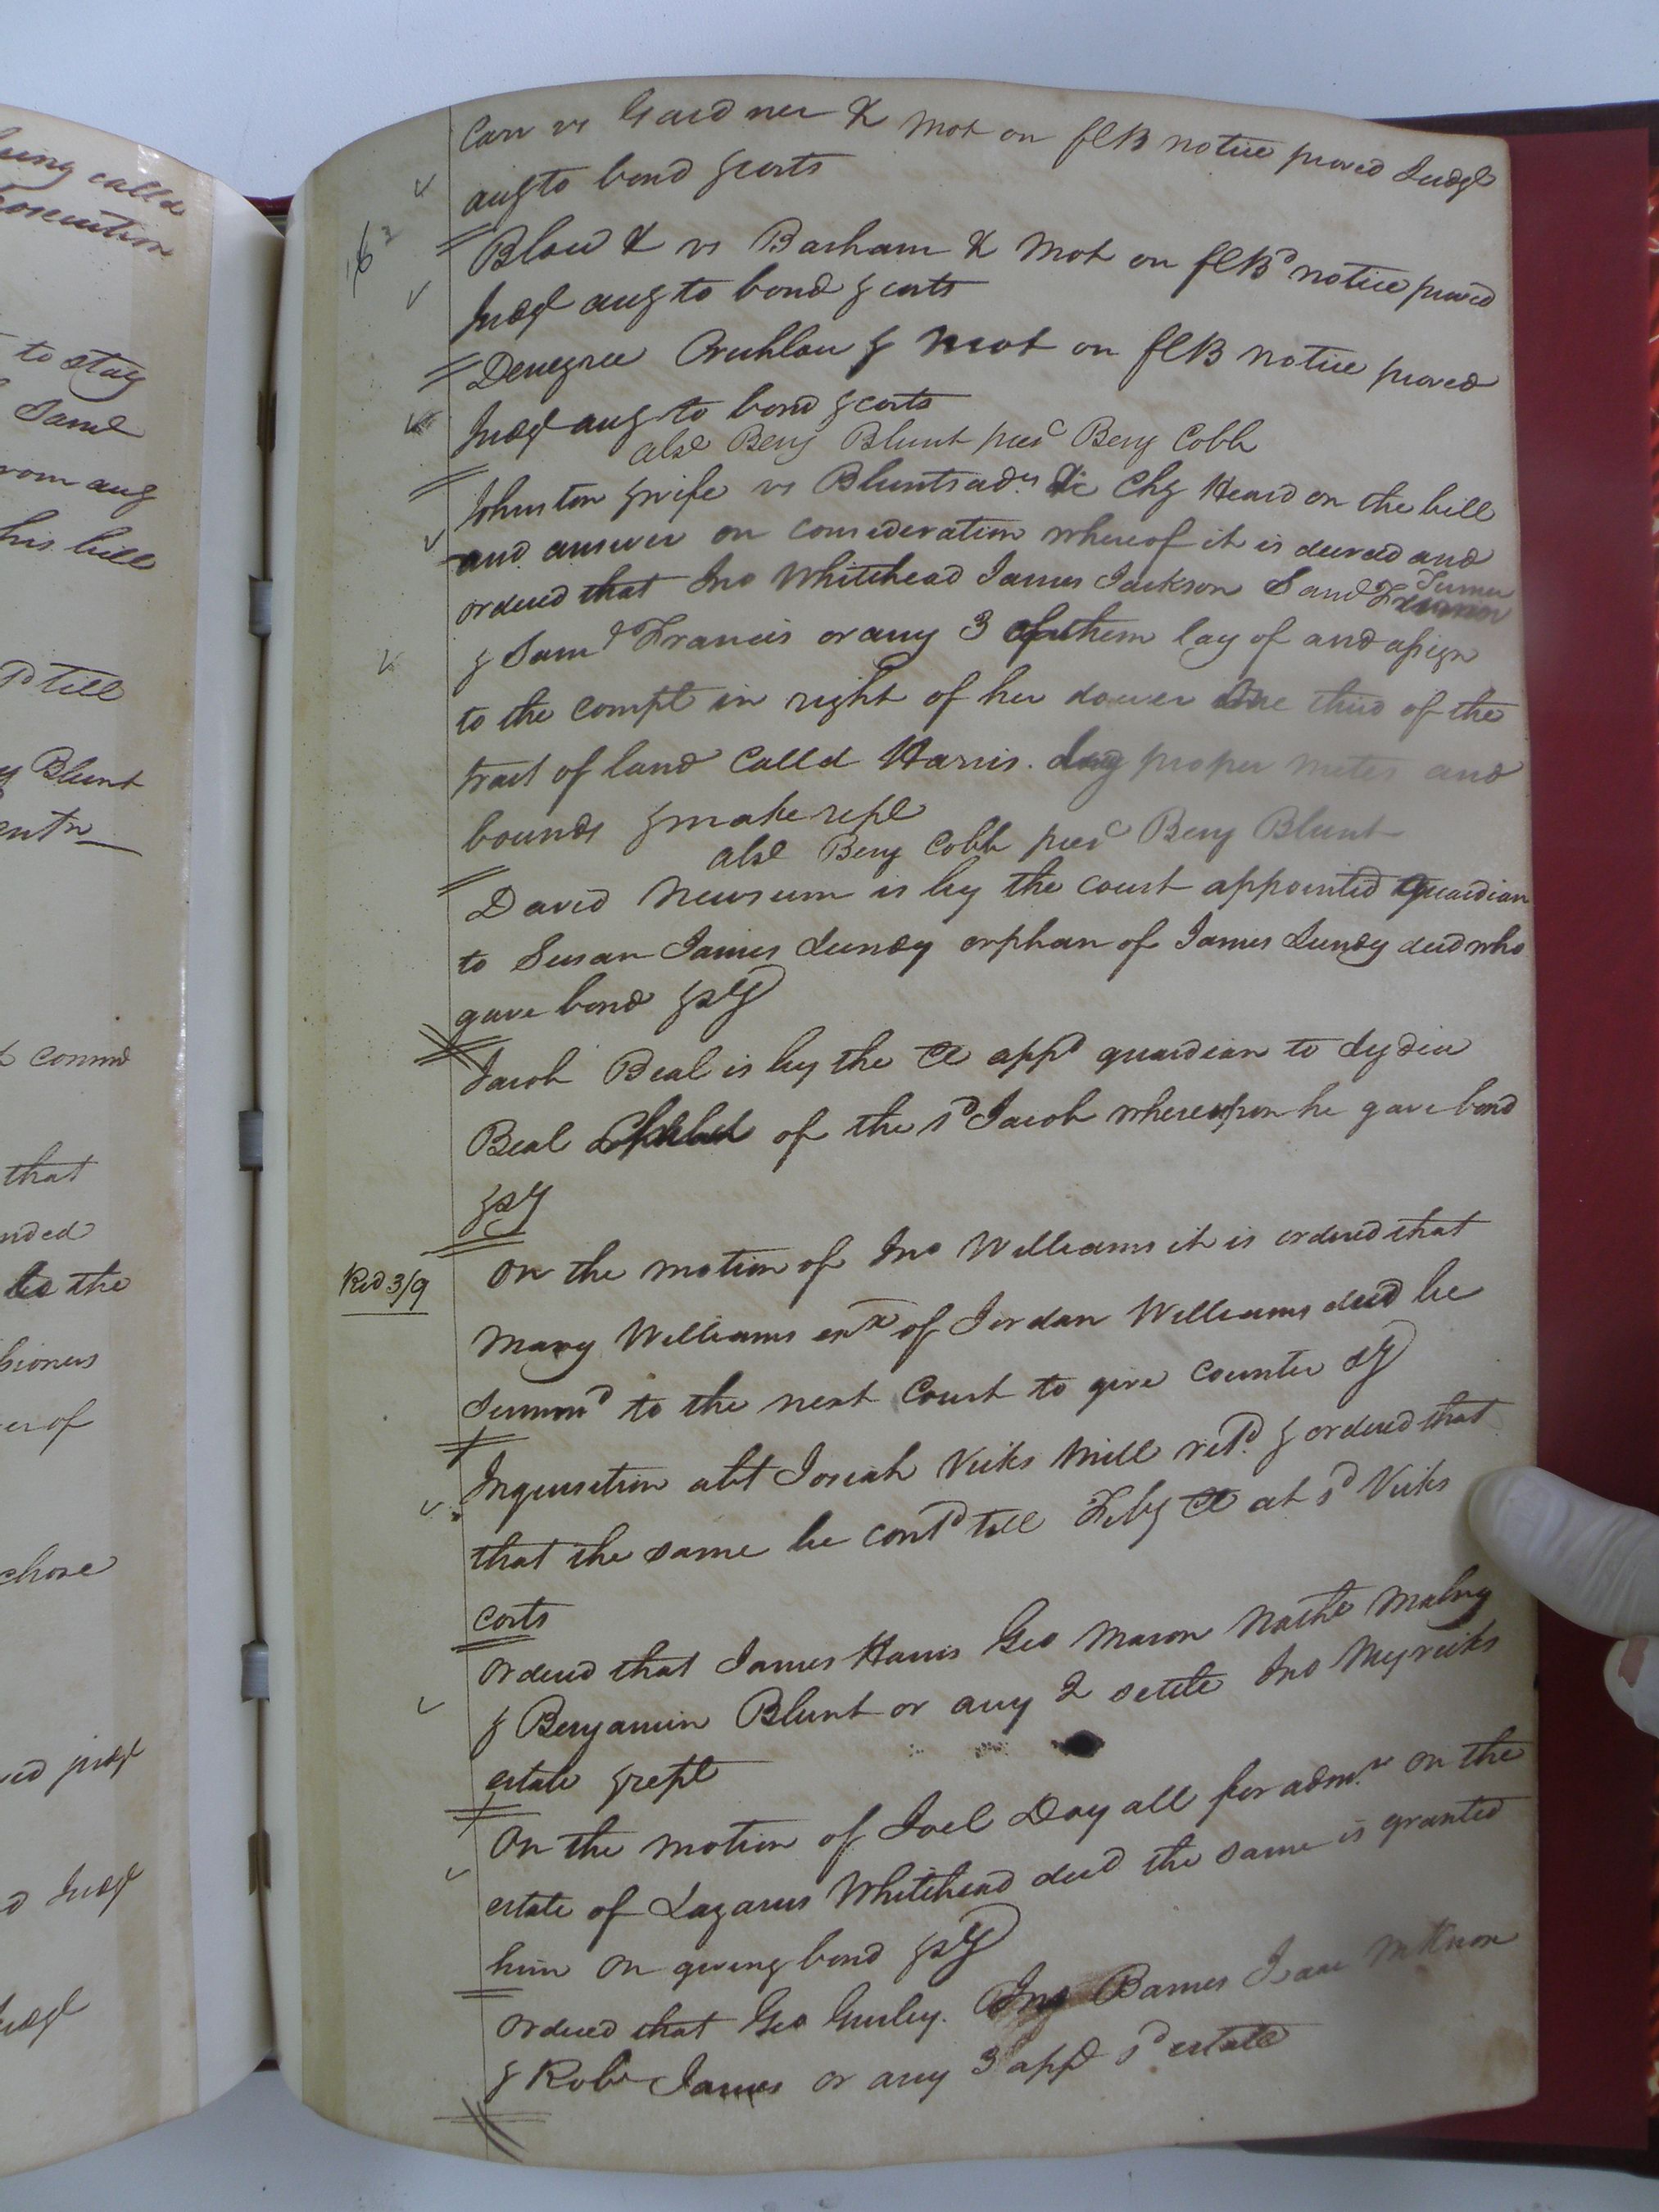 Carr vs Gardner & mot on fCB notice proved Judgt
augto bond & costs
Blow & vs Barham & mot on fCBd notice proved
Judgt augto bond & costs
Denegree Cruchlow & mot on fCB notice proved
Judgt augto bond & costs
abst Benj Blunt prest Benj Cobb
Johnston & wife vs Blunts adrs &c Chy Heard on the bill
and answer on consideration whereof it is decreed and
ordered that Jno Whitehead James Jackson Saml Turner
& Saml Francis or any 3 of them lay of and assign
to the complt in right of her dower one third of the
tract of land Calld Harris. proper metes and
bounds & make rept
abst Benj Cobb prest Benj Blunt
David Newsum is by the court appointed guardian
to Susan James Lundy orphan of James Lundy decd who
gave bond & sy
Jacob Beal is by the Ct appd guardian to Lydia
Beal of the sd Jacob whereupon he gave bond
& sy
Red 3/9
On the motion of Jno Williams it is ordered that
Mary Williams exx of Jordan Williams decd be
Summd to the next Court to give counter sy
Inquisition abt Josiah Vicks Mill retd. & ordered that
that the same be contd till Feby Ct at sd Vicks
costs
Ordered that James Harris Geo Mason Nathl Mabry
& Benjamin Blunt or any 2 settle Jno Myricks
estate & rept
On the motion of Joel Dayall for admn on the
estate of Lazarus Whitehead decd the same is granted
him on giving bond & sy
Ordered that Geo Gurley. Jno Barnes Isaac
& Robt James or any 3 appr sd estate
to stay
Saml
from aug
his bill
till
Blunt
that
the
chose
Judgt